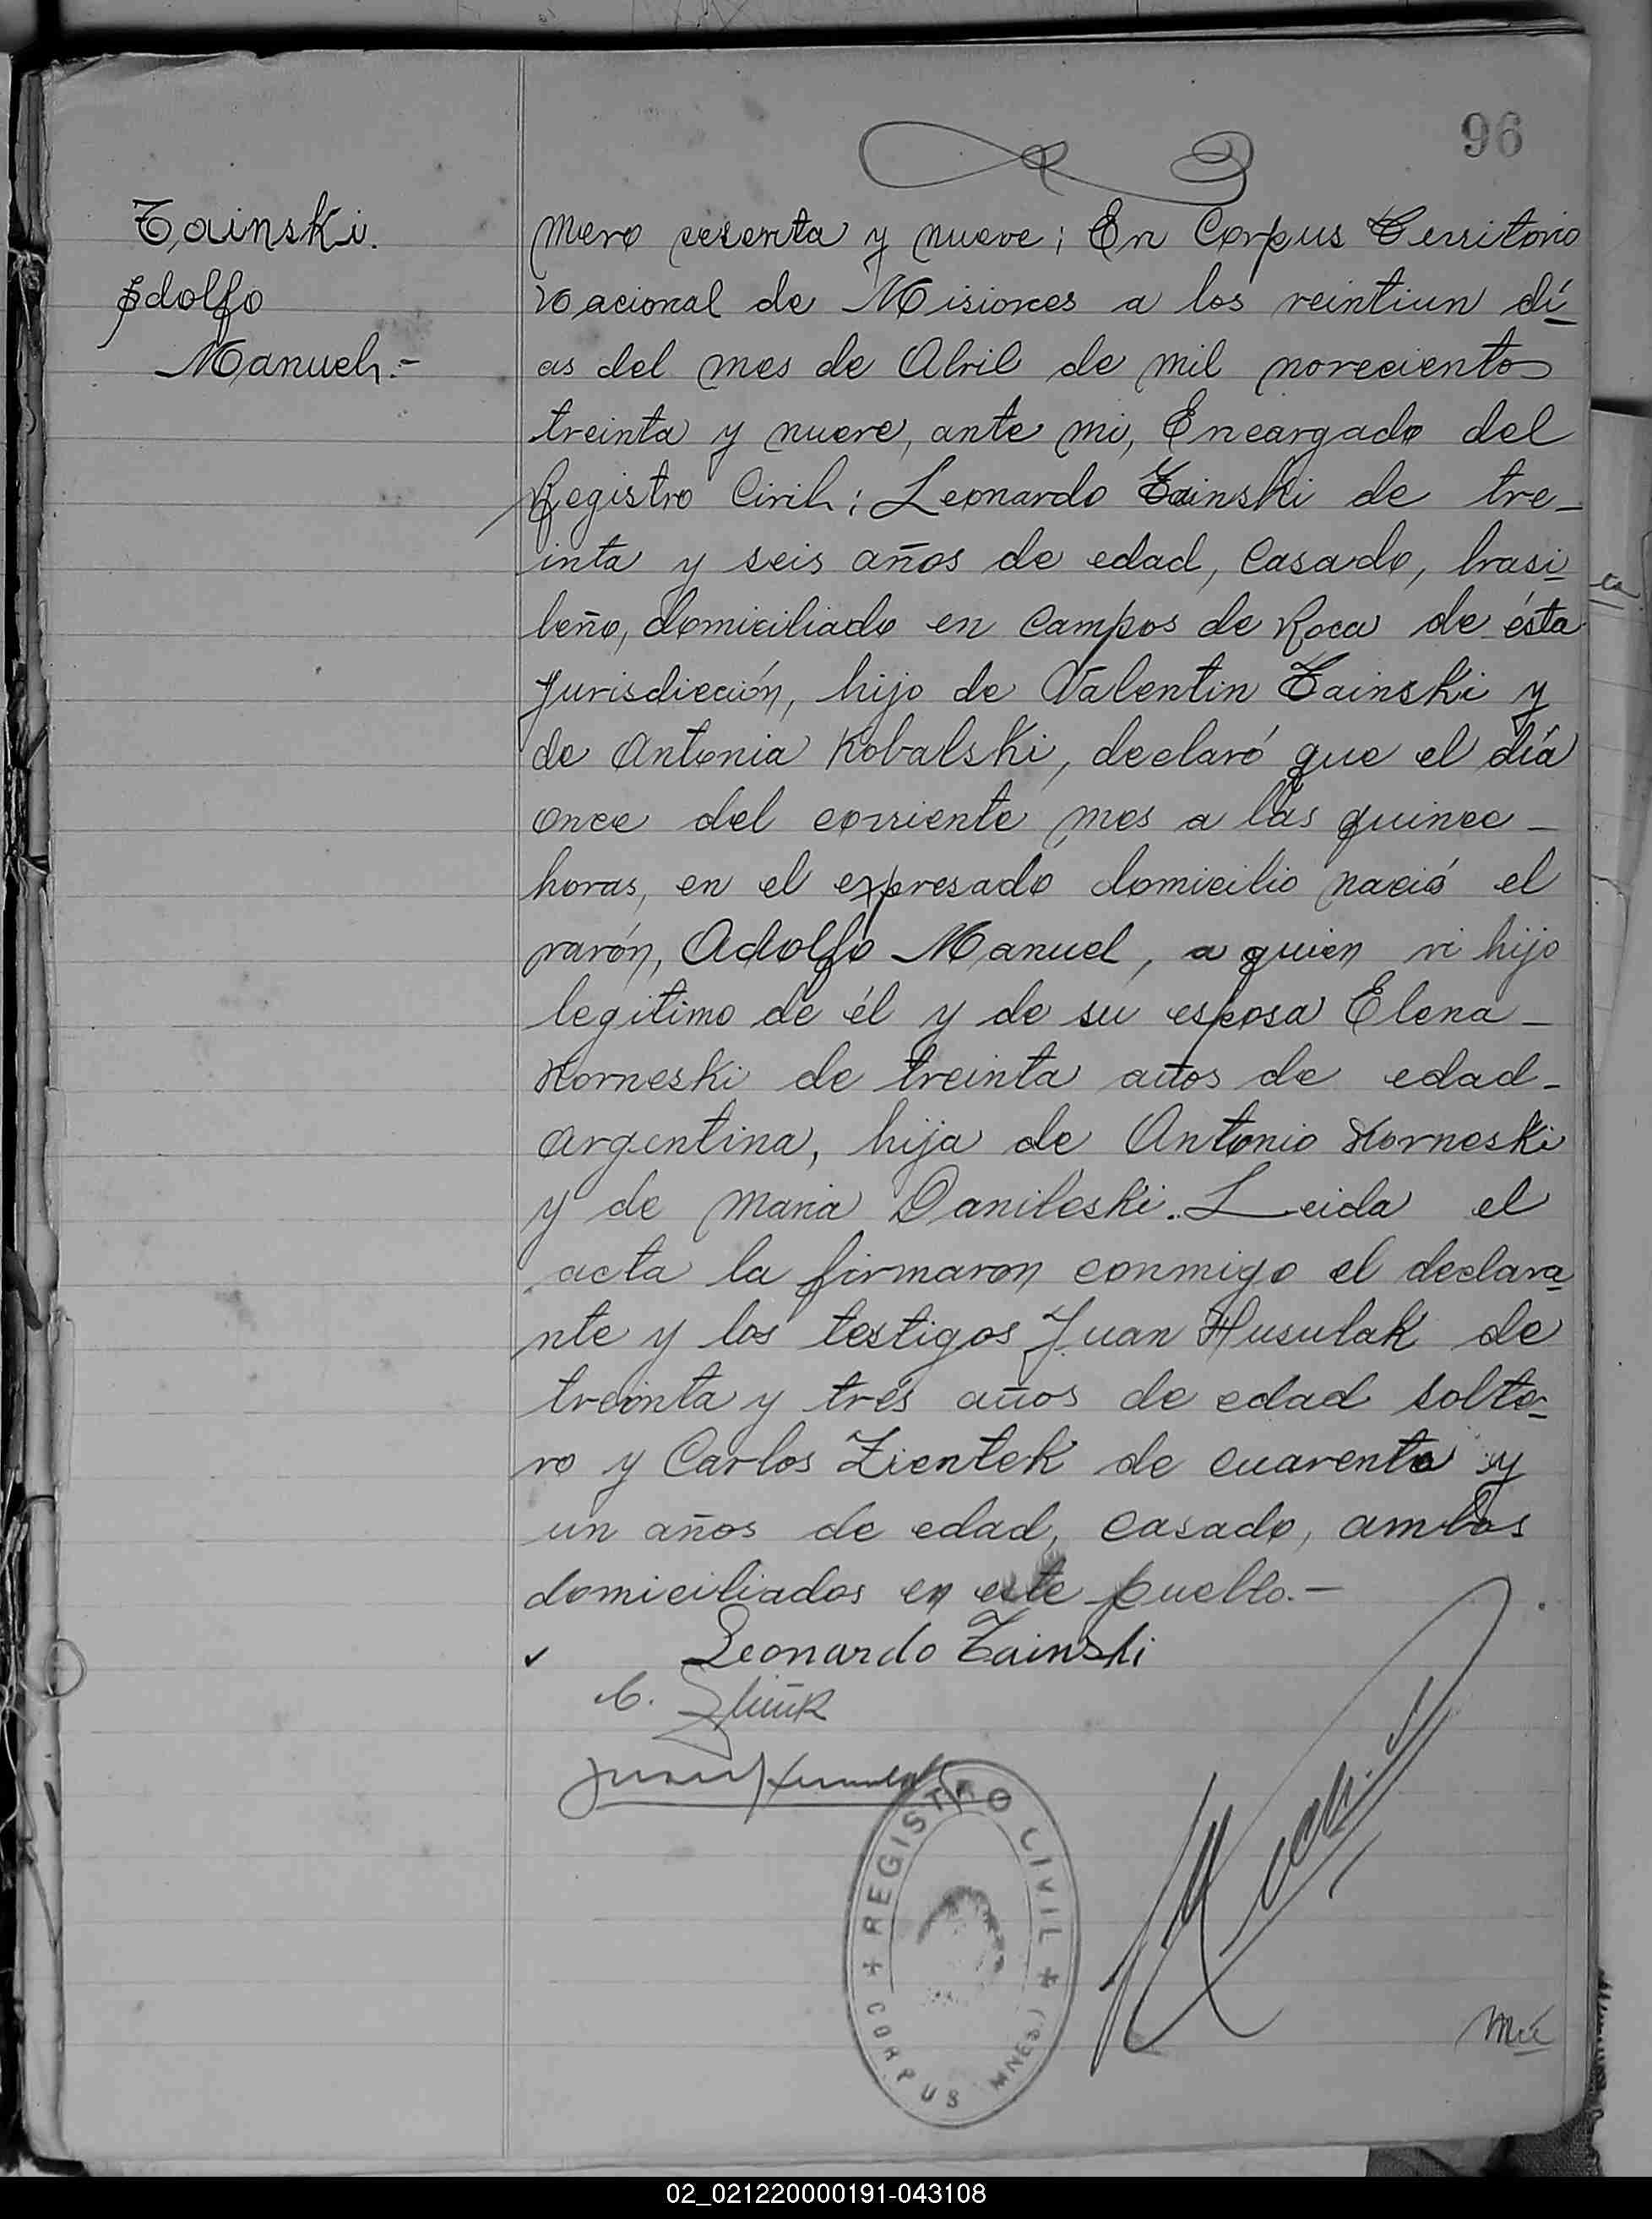 96
Zainski.
Adolfo
Manuel.-
mero sesenta y nueve; En Corpus Territorio
Nacional de Misiones a los veintiun dí-
as del mes de Abril de mil novecientos
treinta y nueve, ante mi, Encargado del
Registro Civil; Leonardo Zainski de tre-
inta y seis años de edad, casado, brasi-
leño, domiciliado en campos de Roca de ésta
Jurisdicción, hijo de Valentin Zainski y
de Antonia Kobalski, declaró que el día
once del corriente mes a las quince -
horas, en el expresado domicilio nació el
varón, Adolfo Manuel, a quien vi hijo
legitimo de él y de su esposa Elena -
Korneski de treinta años de edad -
argentina, hija de Antonio Korneski
y de Maria Danileski. Leida el
acta la firmaron conmigo el declara-
nte y los testigos Juan Husulak de
treinta y tres años de edad solte-
ro y Carlos Zientek de cuarenta y
un años de edad, casado, ambos
domiciliados en este pueblo.-
Leonardo Zainski
C.
Juan
REGISTRO CIVIL
CORPUS (MNES)
02_021220000191-043108